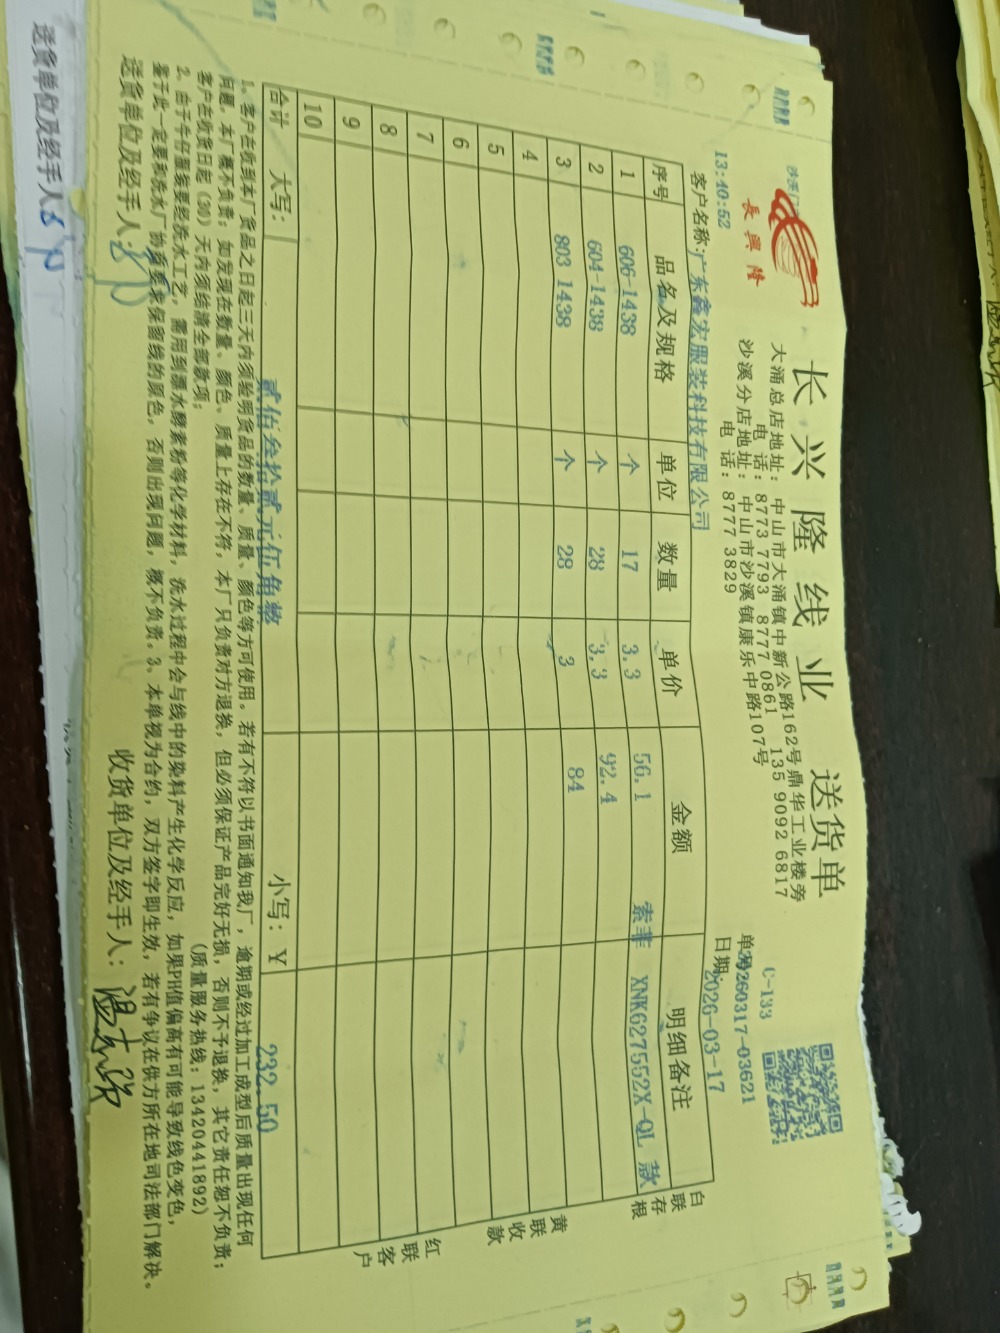 長興隆
长兴隆线业 送货单
大涌总店地址：中山市大涌镇中新公路162号鼎华工业楼旁
电 话：8773 7793 8777 0861 135 9092 6817
沙溪分店地址：中山市沙溪镇康乐中路107号
电 话：8777 3829
C-133
13:40:52
单号 20260317-03621
日期: 2026-03-17
客户名称:广东鑫宏服装科技有限公司
序号 品名及规格 单位 数量 单价 金额 明细备注
1 606-1438 个 17 3.3 56.1 索菲 XNK627552X-QL 款
2 604-1438 个 28 3.3 92.4
3 803 1438 个 28 3 84
4
5
6
7
8
9
10
合计 大写： 贰佰叁拾贰元伍角整 小写：￥ 232.50
白联存根
黄联收款
红联客户
1、客户在收到本厂货品之日起三天内须验明货品的数量、质量、颜色等方可使用。若有不符以书面通知我厂，逾期或经过加工成型后质量出现任何
问题，本厂概不负责；如发现在数量、颜色、质量上存在不符，本厂只负责对方退换，但必须保证产品完好无损，否则不予退换，其它责任恕不负责；
客户在收货日起（30）天内须结清全部款项； （质量服务热线：13420441892）
2、由于牛仔服装要经洗水工艺，需用到漂水酵素粉等化学材料，洗水过程中会与线中的染料产生化学反应，如果PH值偏高有可能导致线色变色，
鉴于此一定要和洗水厂协商要求保留线的原色，否则出现问题，概不负责。3、本单视为合约，双方签字即生效，若有争议在供方所在地司法部门解决。
送货单位及经手人： 收货单位及经手人：
送货单位及经手人